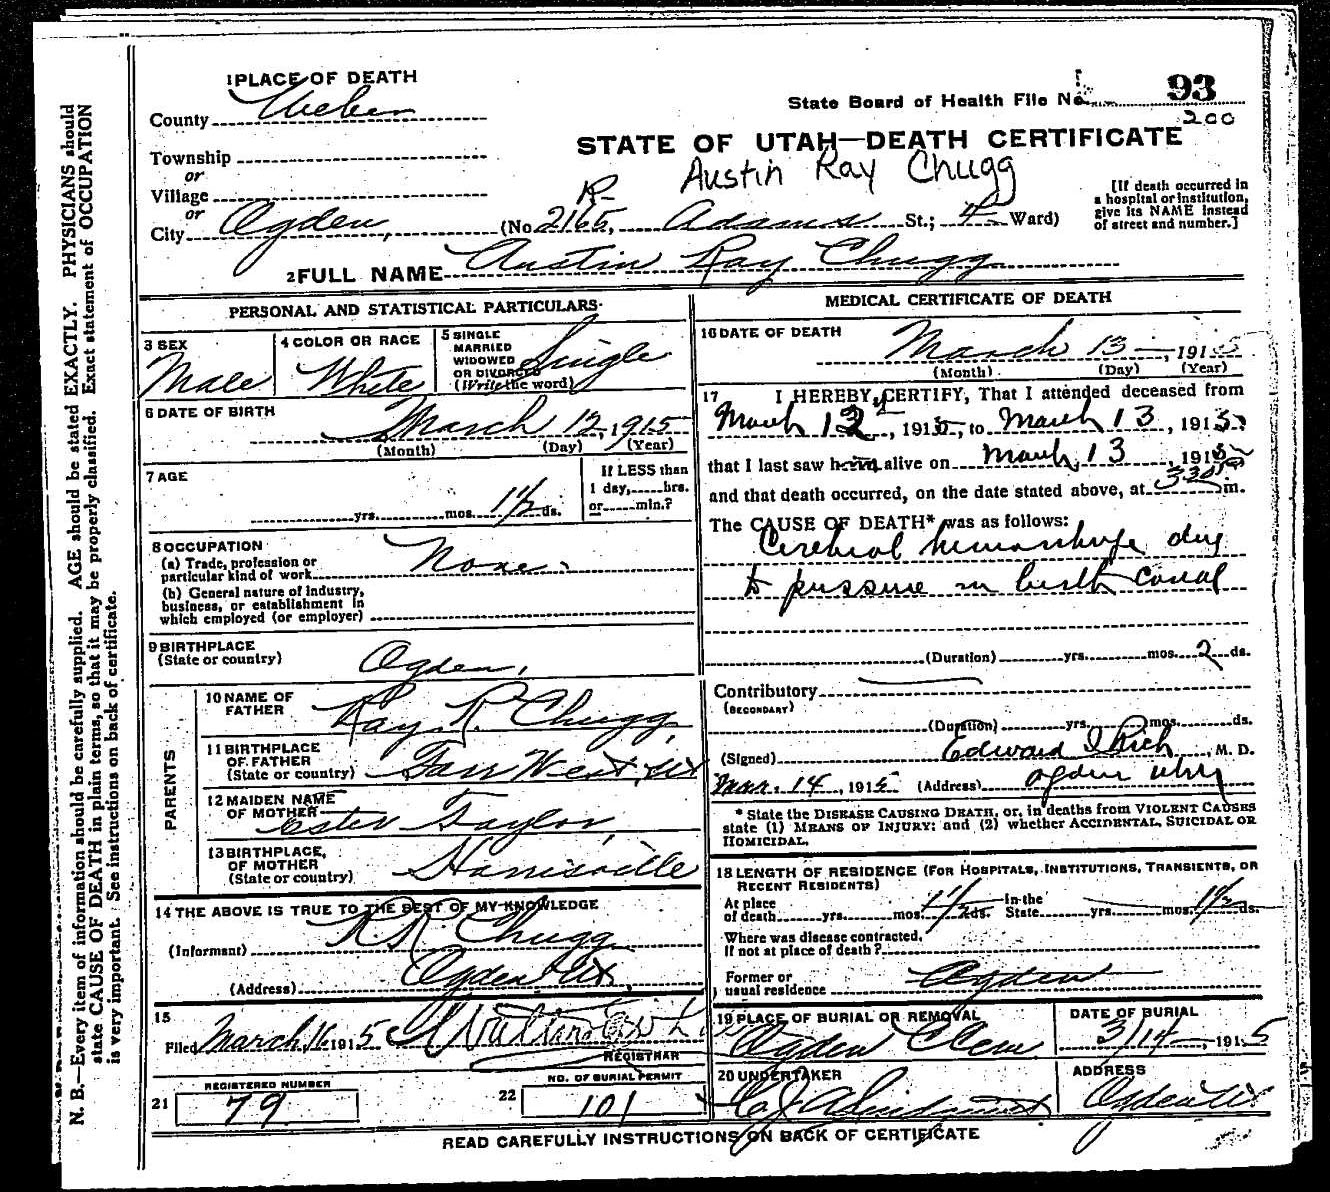 1 PLACE OF DEATH
County Weber
State Board of Health File No. 93
200
STATE OF UTAH—DEATH CERTIFICATE
Township
or
Village
or
City Ogden, (No. 2165, Adams St.; 4 Ward)
Austin Ray Chugg
[If death occurred in
a hospital or institution,
give its NAME instead
of street and number.]
2 FULL NAME Austin Ray Chugg
PERSONAL AND STATISTICAL PARTICULARS
3 SEX
Male
4 COLOR OR RACE
White
5 SINGLE
MARRIED
WIDOWED
OR DIVORCED
(Write the word)
Single
6 DATE OF BIRTH
March 12, 1915
(Month) (Day) (Year)
7 AGE
yrs. mos. 1½ ds.
If LESS than
1 day, hrs.
or min.?
8 OCCUPATION
(a) Trade, profession or
particular kind of work None
(b) General nature of industry,
business, or establishment in
which employed (or employer)
9 BIRTHPLACE
(State or country) Ogden,
PARENTS
10 NAME OF
FATHER Ray R. Chugg,
11 BIRTHPLACE
OF FATHER
(State or country) Farr West, Ut
12 MAIDEN NAME
OF MOTHER Ester Taylor,
13 BIRTHPLACE,
OF MOTHER
(State or country) Harrisville
14 THE ABOVE IS TRUE TO THE BEST OF MY KNOWLEDGE
(Informant) R R Chugg
(Address) Ogden Ut,
15
Filed March 16 1915
REGISTRAR
REGISTERED NUMBER
21 79
NO. OF BURIAL PERMIT
22 101
MEDICAL CERTIFICATE OF DEATH
16 DATE OF DEATH
March 13, 1915
(Month) (Day) (Year)
17 I HEREBY CERTIFY, That I attended deceased from
March 12, 1915, to March 13, 1915
that I last saw him alive on March 13, 1915
and that death occurred, on the date stated above, at 330 m.
The CAUSE OF DEATH* was as follows:
Cerebral hemorrhage due
to pressure in birth canal
(Duration) yrs. mos. 2 ds.
Contributory
(SECONDARY)
(Duration) yrs. mos. ds.
(Signed) Edward I Rich, M. D.
Mar. 14, 1915 (Address) Ogden Utah
* State the DISEASE CAUSING DEATH, or, in deaths from VIOLENT CAUSES
state (1) MEANS OF INJURY; and (2) whether ACCIDENTAL, SUICIDAL OR
HOMICIDAL.
18 LENGTH OF RESIDENCE (FOR HOSPITALS, INSTITUTIONS, TRANSIENTS, OR
RECENT RESIDENTS)
At place
of death yrs. mos. 1½ ds. In the
State yrs. mos. 1½ ds.
Where was disease contracted,
if not at place of death?
Former or
usual residence Ogden
19 PLACE OF BURIAL OR REMOVAL
Ogden Cem
DATE OF BURIAL
3/14, 1915
20 UNDERTAKER
ADDRESS
Ogden Ut
READ CAREFULLY INSTRUCTIONS ON BACK OF CERTIFICATE
N. B.—Every item of information should be carefully supplied. AGE should be stated EXACTLY. PHYSICIANS should
state CAUSE OF DEATH in plain terms, so that it may be properly classified. Exact statement of OCCUPATION
is very important. See instructions on back of certificate.